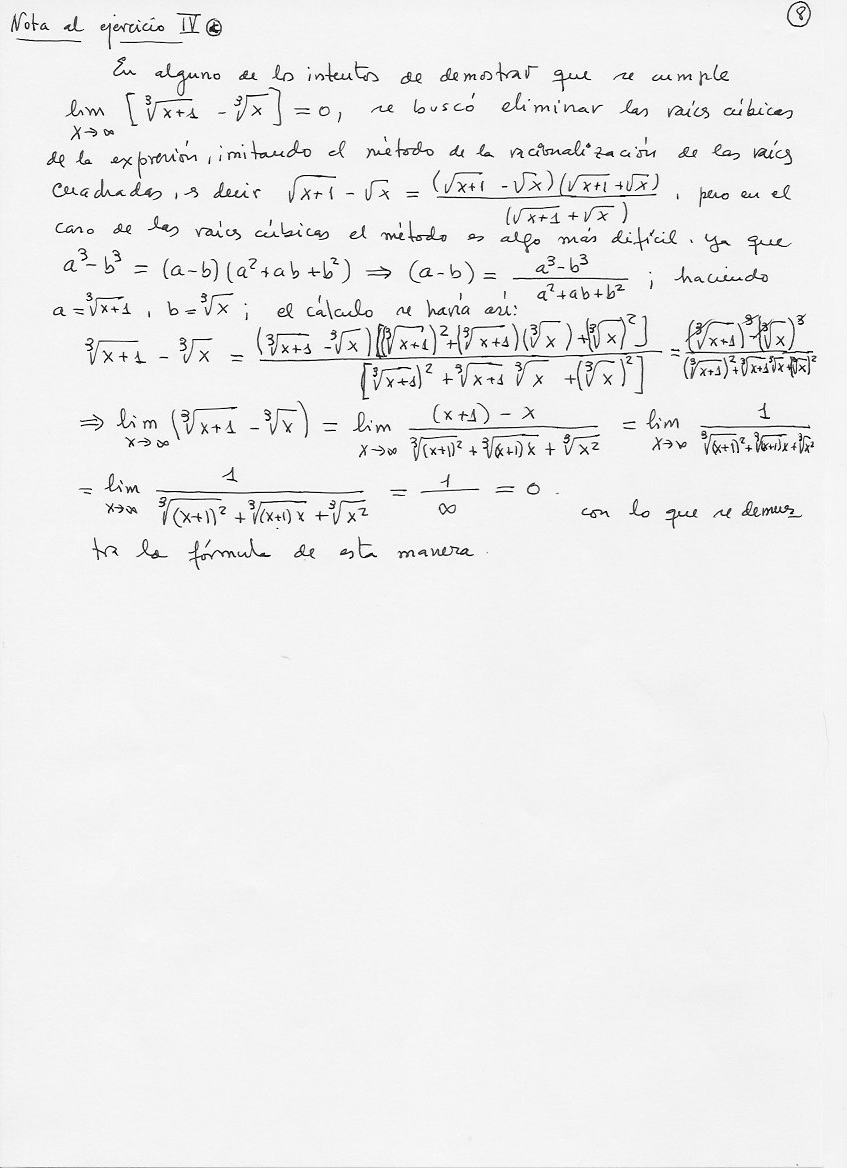 ⑧
Nota al ejercicio IV ⓒ
En alguno de los intentos de demostrar que se cumple
lim x→∞ [∛(x+1) - ∛x] = 0, se buscó eliminar las raíces cúbicas
de la expresión, imitando el método de la racionalización de las raíces
cuadradas, es decir √(x+1) - √x = (√(x+1) - √x)(√(x+1) + √x) / (√(x+1) + √x), pero en el
caso de las raíces cúbicas el método es algo más difícil. Ya que
a³-b³ = (a-b)(a²+ab+b²) ⇒ (a-b) = (a³-b³)/(a²+ab+b²) ; haciendo
a = ∛(x+1), b = ∛x ; el cálculo se haría así:
∛(x+1) - ∛x = (∛(x+1) - ∛x)[(∛(x+1))² + (∛(x+1))(∛x) + (∛x)²] / [(∛(x+1))² + ∛(x+1) ∛x + (∛x)²] = ((∛(x+1))³ - (∛x)³) / ((∛(x+1))² + ∛(x+1) ∛x + (∛x)²)
⇒ lim x→∞ (∛(x+1) - ∛x) = lim x→∞ ((x+1) - x) / (∛((x+1)²) + ∛((x+1)x) + ∛(x²)) = lim x→∞ 1 / (∛((x+1)²) + ∛((x+1)x) + ∛(x²))
= lim x→∞ 1 / (∛((x+1)²) + ∛((x+1)x) + ∛(x²)) = 1/∞ = 0. con lo que se demues
tra la fórmula de esta manera.